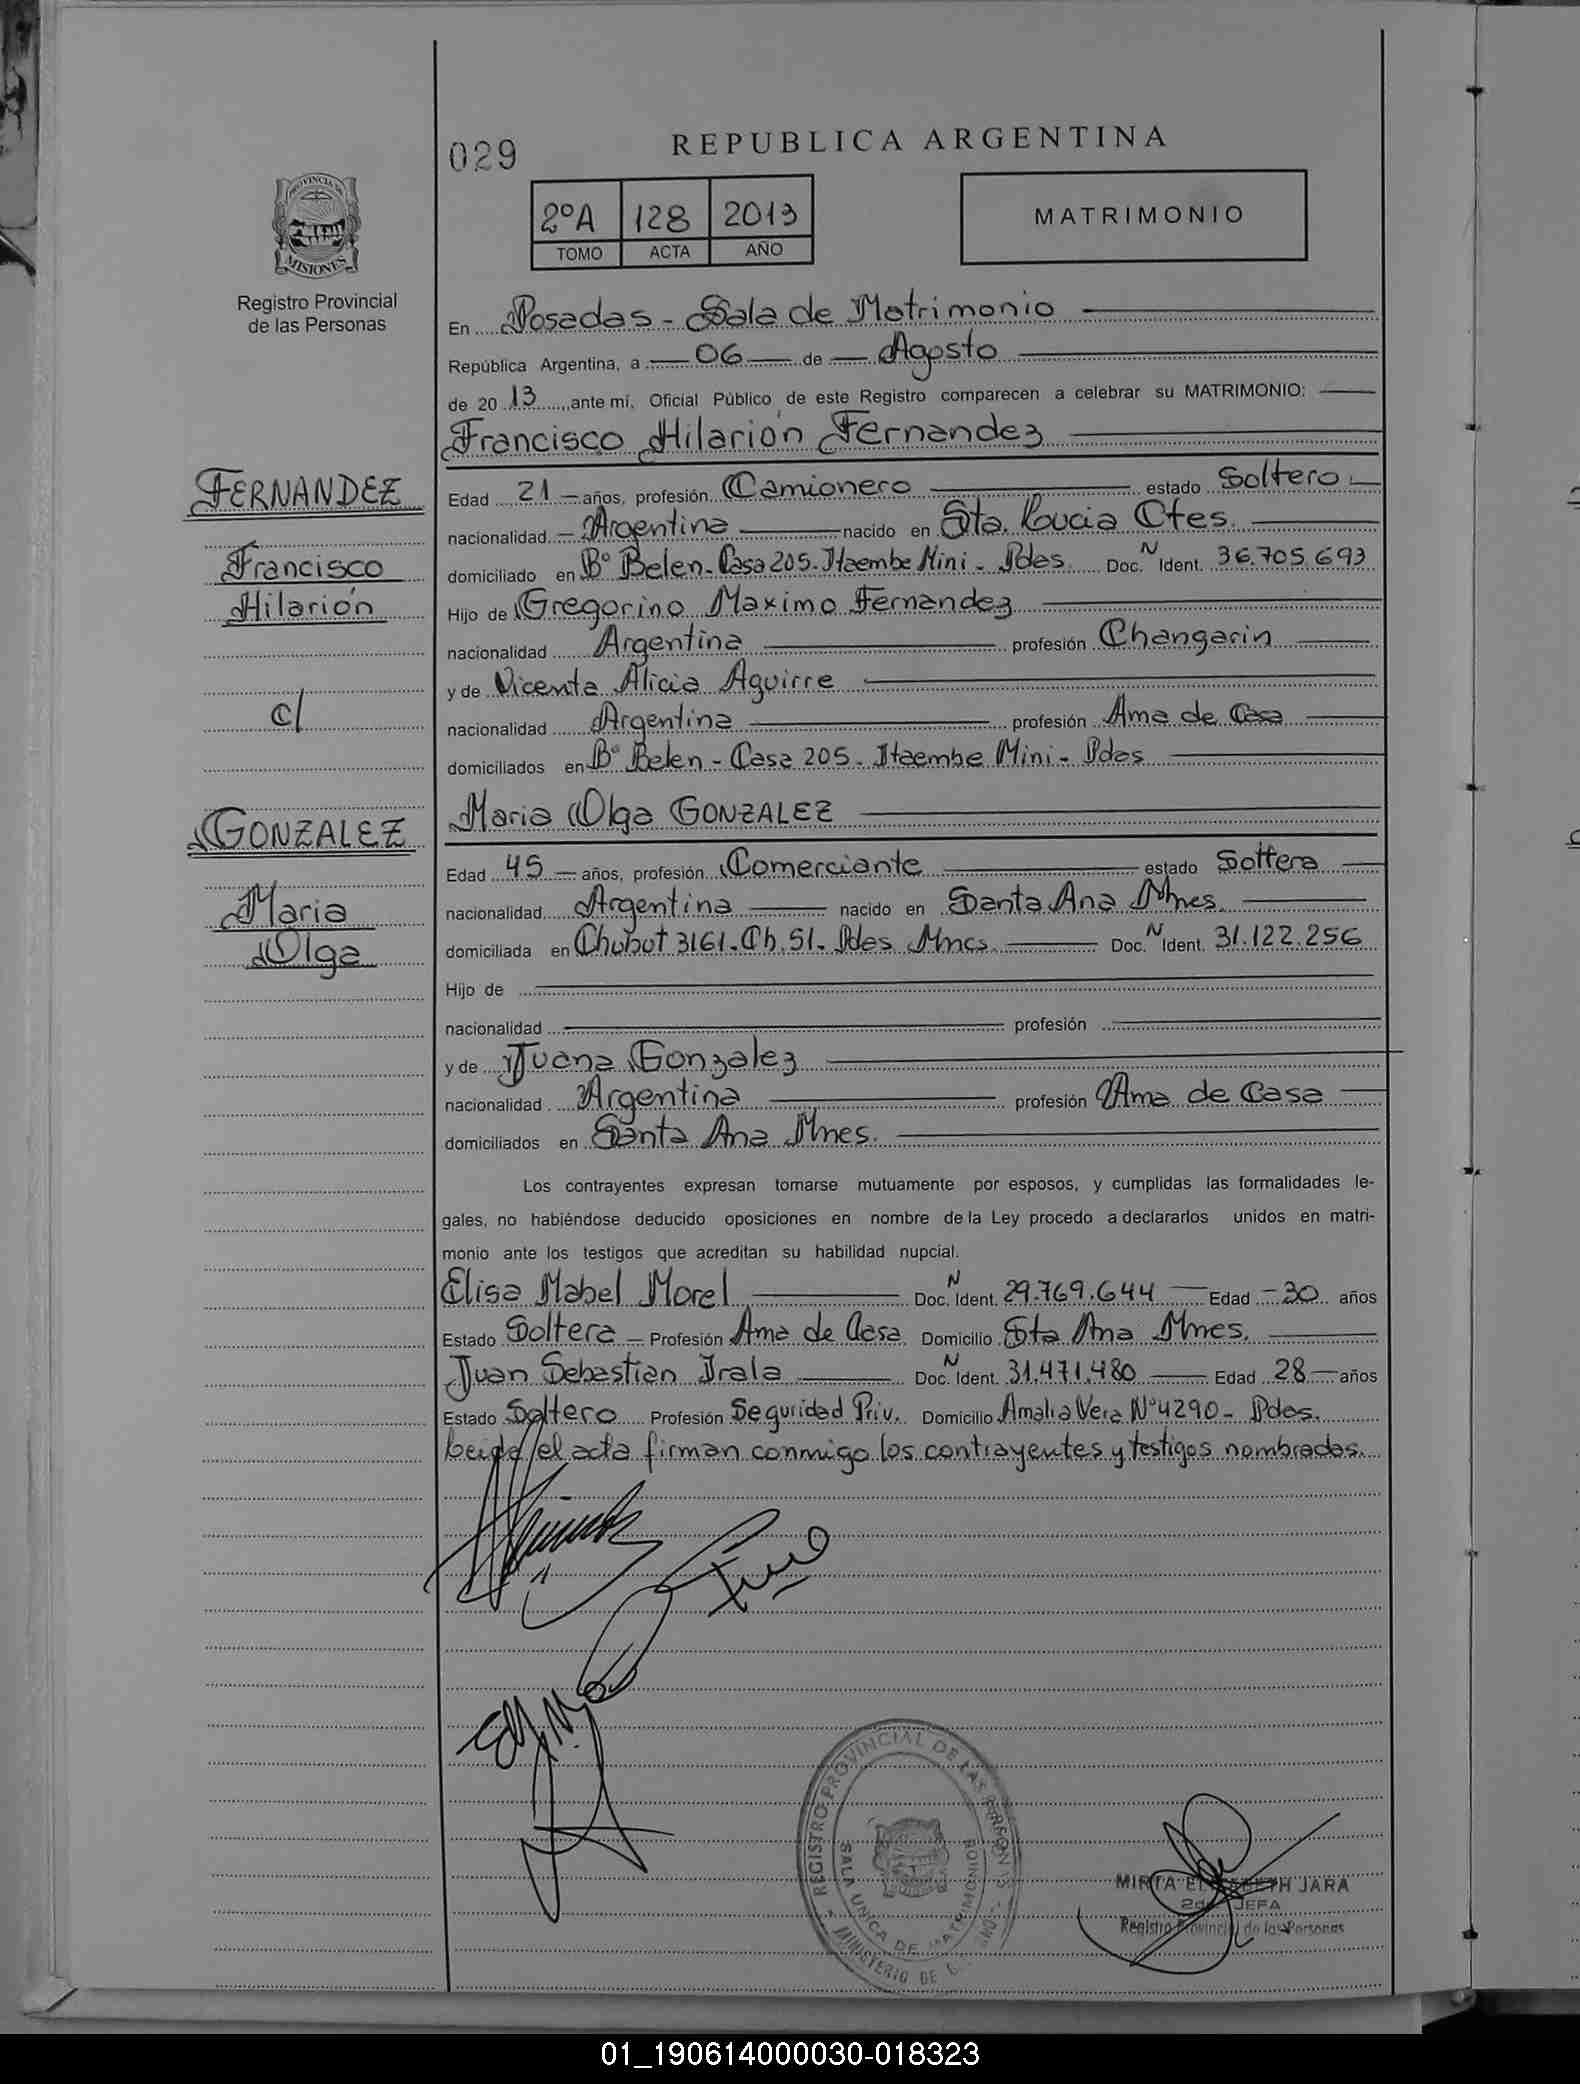 029
REPUBLICA ARGENTINA
PROVINCIA DE MISIONES
Registro Provincial
de las Personas
2ºA 128 2013
TOMO ACTA AÑO
MATRIMONIO
En Posadas - Sala de Matrimonio
República Argentina, a 06 de Agosto
de 2013 ante mí, Oficial Público de este Registro comparecen a celebrar su MATRIMONIO:
Francisco Hilarión Fernandez
FERNANDEZ
Francisco
Hilarión
c/
GONZALEZ
Maria
Olga
Edad 21 años, profesión Camionero estado Soltero
nacionalidad Argentina nacido en Sta. Lucia Ctes.
domiciliado en Bº Belen - Casa 205 - Itaembe Mini - Pdas. Doc. N Ident. 36.705.693
Hijo de Gregorino Maximo Fernandez
nacionalidad Argentina profesión Changarin
y de Vicenta Alicia Aguirre
nacionalidad Argentina profesión Ama de Casa
domiciliados en Bº Belen - Casa 205 - Itaembe Mini - Pdas
Maria Olga GONZALEZ
Edad 45 años, profesión Comerciante estado Soltera
nacionalidad Argentina nacido en Santa Ana Mnes.
domiciliada en Chubut 3161 - Ch. 51 - Pdas Mnes. Doc. N Ident. 31.122.256
Hijo de
nacionalidad profesión
y de Juana Gonzalez
nacionalidad Argentina profesión Ama de Casa
domiciliados en Santa Ana Mnes.
Los contrayentes expresan tomarse mutuamente por esposos, y cumplidas las formalidades le-
gales, no habiéndose deducido oposiciones en nombre de la Ley procedo a declararlos unidos en matri-
monio ante los testigos que acreditan su habilidad nupcial.
Elisa Mabel Morel Doc. N Ident. 29.769.644 Edad 30 años
Estado Soltera Profesión Ama de Casa Domicilio Sta Ana Mnes.
Juan Sebastian Irala Doc. N Ident. 31.471.480 Edad 28 años
Estado Soltero Profesión Seguridad Priv. Domicilio Amalia Vera Nº 4290 - Pdas.
Leida el acta firman conmigo los contrayentes y testigos nombrados.
REGISTRO PROVINCIAL DE LAS PERSONAS
SALA UNICA DE MATRIMONIOS
MINISTERIO DE G
MIRTA ELISABETH JARA
2da JEFA
Registro Provincial de las Personas
01_190614000030-018323